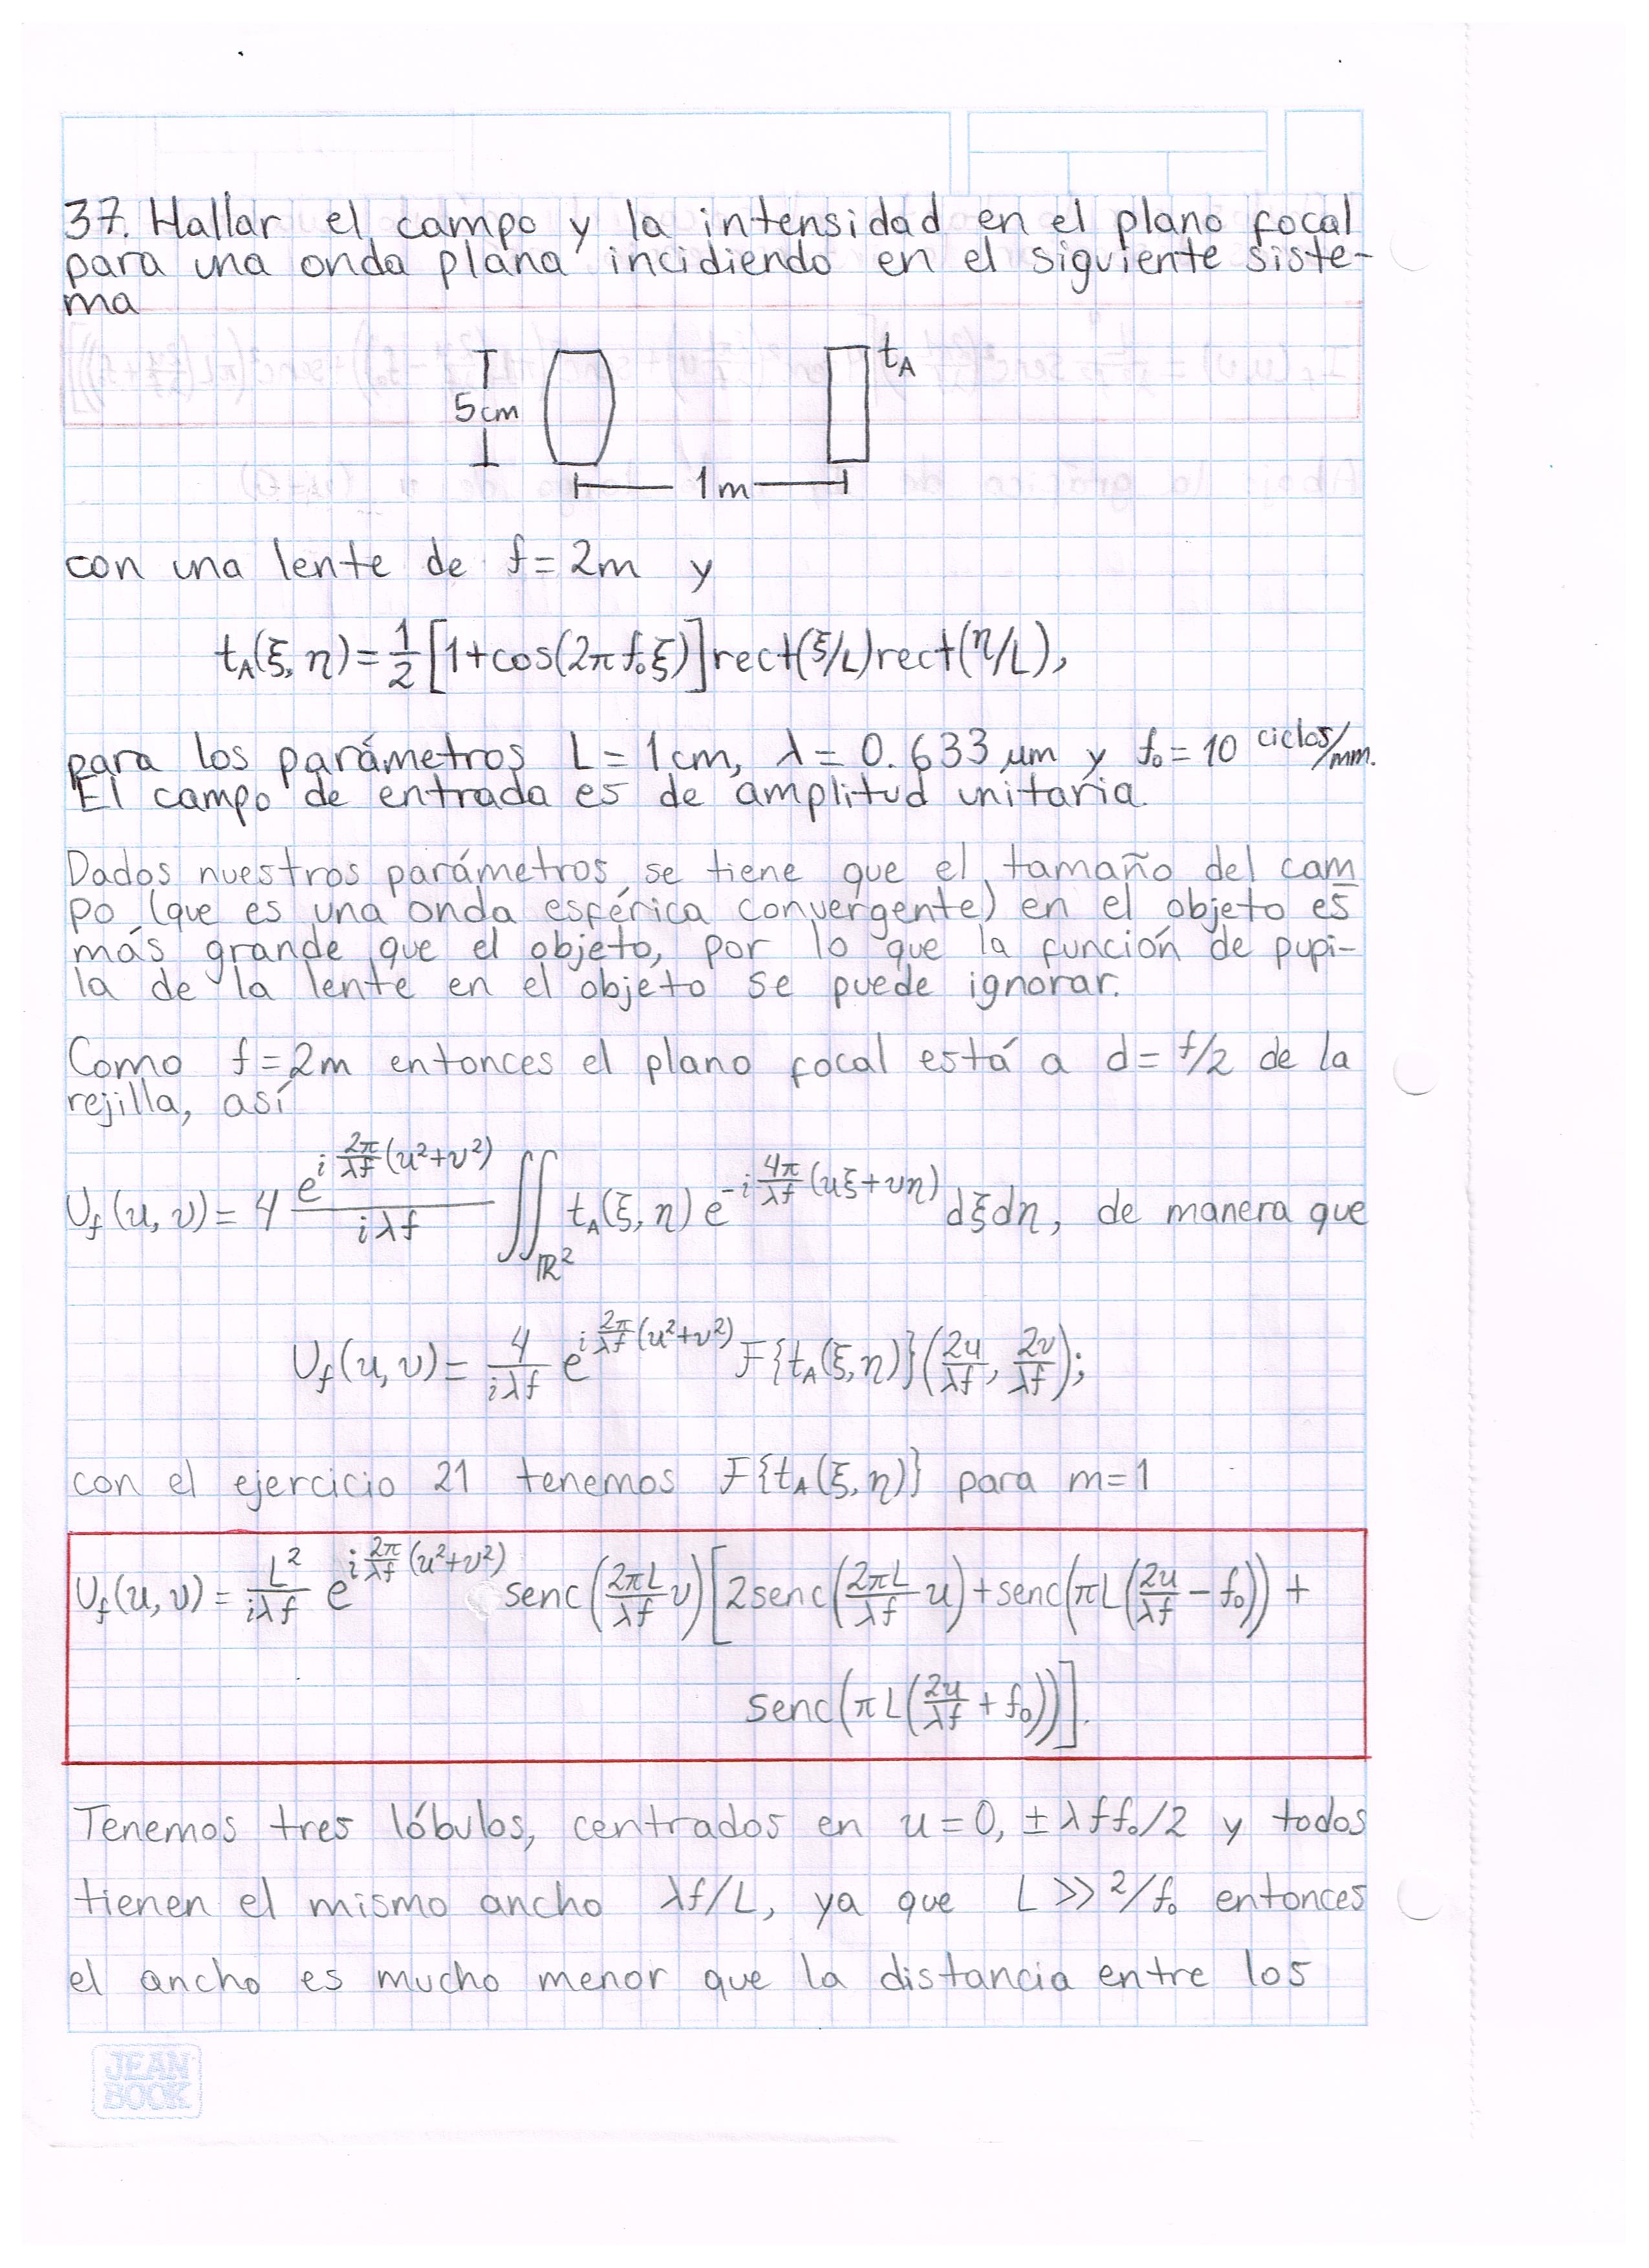 37. Hallar el campo y la intensidad en el plano focal
para una onda plana incidiendo en el siguiente siste-
ma
5cm
t_A
1m
con una lente de f=2m y
t_A(ξ, η) = 1/2 [1+cos(2π f₀ξ)] rect(ξ/L) rect(η/L),
para los parámetros L=1cm, λ=0.633 μm y f₀=10 ciclos/mm.
El campo de entrada es de amplitud unitaria.
Dados nuestros parámetros, se tiene que el tamaño del cam
po (que es una onda esférica convergente) en el objeto es
más grande que el objeto, por lo que la función de pupi-
la de la lente en el objeto se puede ignorar.
Como f=2m entonces el plano focal está a d=f/2 de la
rejilla, así
U_f(u,v) = 4 e^{i 2π/λf (u²+v²)}/iλf ∬_{ℝ²} t_A(ξ,η) e^{-i 4π/λf (uξ+vη)} dξdη, de manera que
U_f(u,v) = 4/iλf e^{i 2π/λf (u²+v²)} F{t_A(ξ,η)}(2u/λf, 2v/λf);
con el ejercicio 21 tenemos F{t_A(ξ,η)} para m=1
U_f(u,v) = L²/iλf e^{i 2π/λf (u²+v²)} senc(2πL/λf v)[2senc(2πL/λf u)+senc(πL(2u/λf - f₀)) +
senc(πL(2u/λf + f₀))].
Tenemos tres lóbulos, centrados en u=0, ±λff₀/2 y todos
tienen el mismo ancho λf/L, ya que L >> 2/f₀ entonces
el ancho es mucho menor que la distancia entre los
JEAN
BOOK